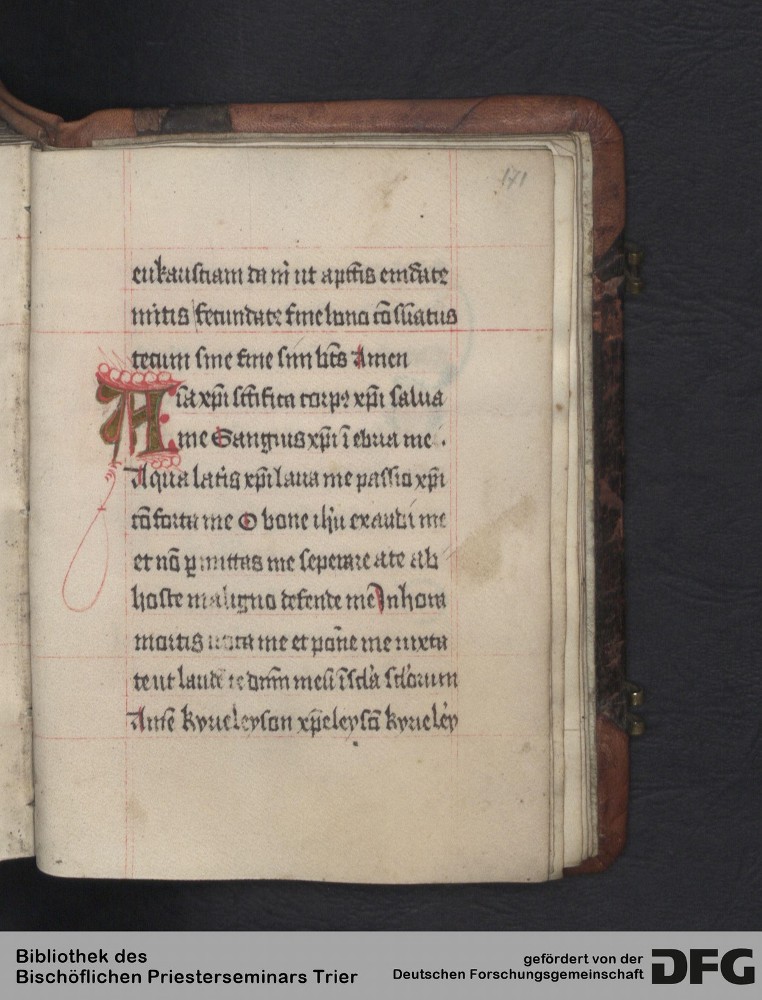 171
eukaristiam da nr̄ ut aptis̄ emd̄ate
mr̄tis fecundate sine bono cōsūatus
tecum sine fine sim btīs Amen
Aīa xpī sc̄tifica corpꝰ xpī salua
me Sanguis xpī īebria me .
Aqua lat͛is xpī laua me passio xpī
cōforta me O bone ih̄u exaudi me
et nō ꝑmittas me seperare a te ab
hoste maligno defende me In hora
mortis uoca me et pone me iuxta
te ut laudē te dn̄m meū ī scl̄a scl̄orum
Amē kyrieleyson xp̄eleysō kyrieley
Bibliothek des
Bischöflichen Priesterseminars Trier
gefördert von der
Deutschen Forschungsgemeinschaft
DFG